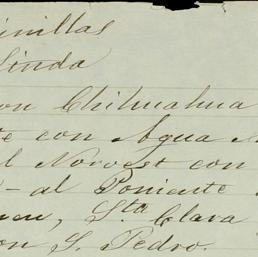 Linda
on Chihuahua
te con Agua
l Noroest con
- al Poniente
, Sta Clara
on S. Pedro.